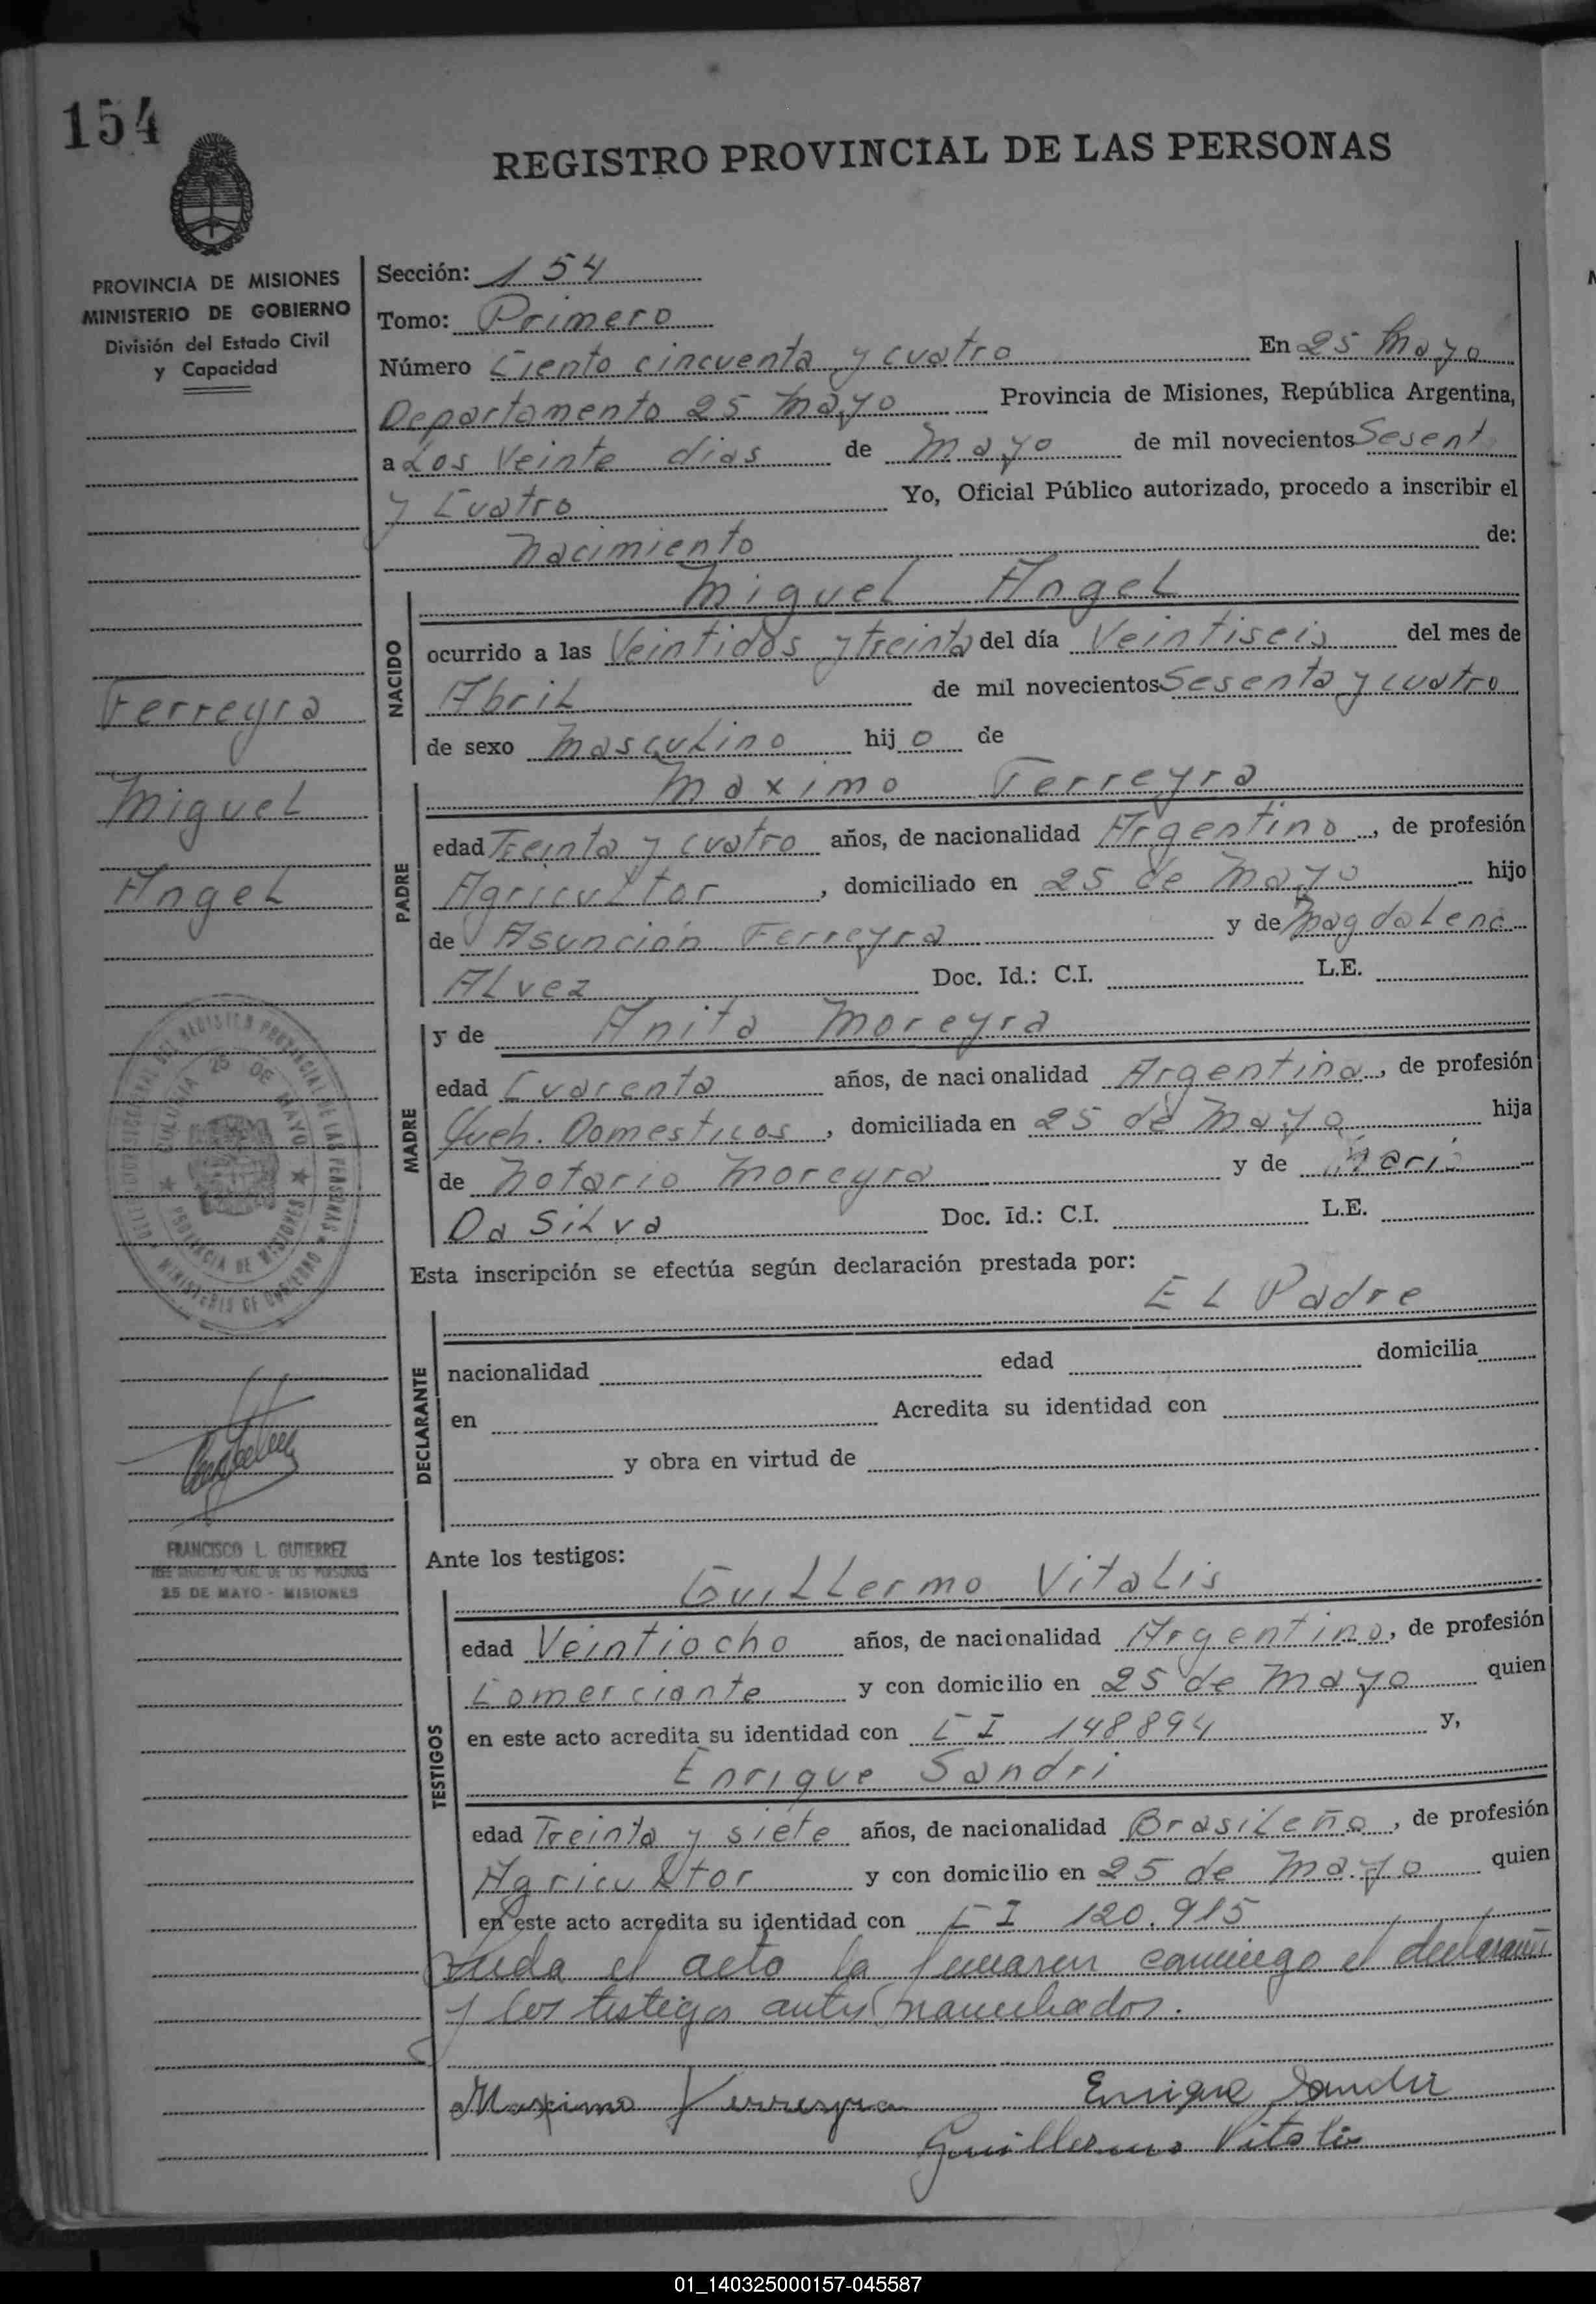 154
REGISTRO PROVINCIAL DE LAS PERSONAS
PROVINCIA DE MISIONES
MINISTERIO DE GOBIERNO
División del Estado Civil
y Capacidad
Sección: 154
Tomo: Primero
Número Ciento cincuenta y cuatro En 25 Mayo
Departamento 25 Mayo Provincia de Misiones, República Argentina,
a Los Veinte dias de Mayo de mil novecientos Sesent
y Cuatro Yo, Oficial Público autorizado, procedo a inscribir el
Nacimiento de:
NACIDO
Miguel Angel
ocurrido a las Veintidos y treinta del día Veintiseis del mes de
Abril de mil novecientos Sesenta y cuatro
de sexo Masculino hijo de
Ferreyra
Miguel
Angel
PADRE
Maximo Ferreyra
edad Treinta y cuatro años, de nacionalidad Argentino, de profesión
Agricultor, domiciliado en 25 de Mayo hijo
de Asunción Ferreyra y de Magdalena
Alvez Doc. Id.: C.I. L.E.
MADRE
y de Anita Moreyra
edad Cuarenta años, de nacionalidad Argentina, de profesión
Queh. Domesticos, domiciliada en 25 de Mayo hija
de Notario Moreyra y de Maria
Da Silva Doc. Id.: C.I. L.E.
COLONIA 25 DE MAYO
PROVINCIA DE MISIONES
MINISTERIO DE GOBIERNO
Esta inscripción se efectúa según declaración prestada por:
El Padre
DECLARANTE
nacionalidad edad domicilia
en Acredita su identidad con
y obra en virtud de
FRANCISCO L. GUTIERREZ
25 DE MAYO - MISIONES
Ante los testigos:
TESTIGOS
Guillermo Vitalis
edad Veintiocho años, de nacionalidad Argentino, de profesión
Comerciante y con domicilio en 25 de Mayo quien
en este acto acredita su identidad con CI 148894 y,
Enrique Sandri
edad Treinta y siete años, de nacionalidad Brasileño, de profesión
Agricultor y con domicilio en 25 de Mayo quien
en este acto acredita su identidad con CI 120.915
el acto la conmigo el
y los testigos
Maximo Ferreyra Enrique Sandri
Guillermo Vitalis
01_140325000157-045587